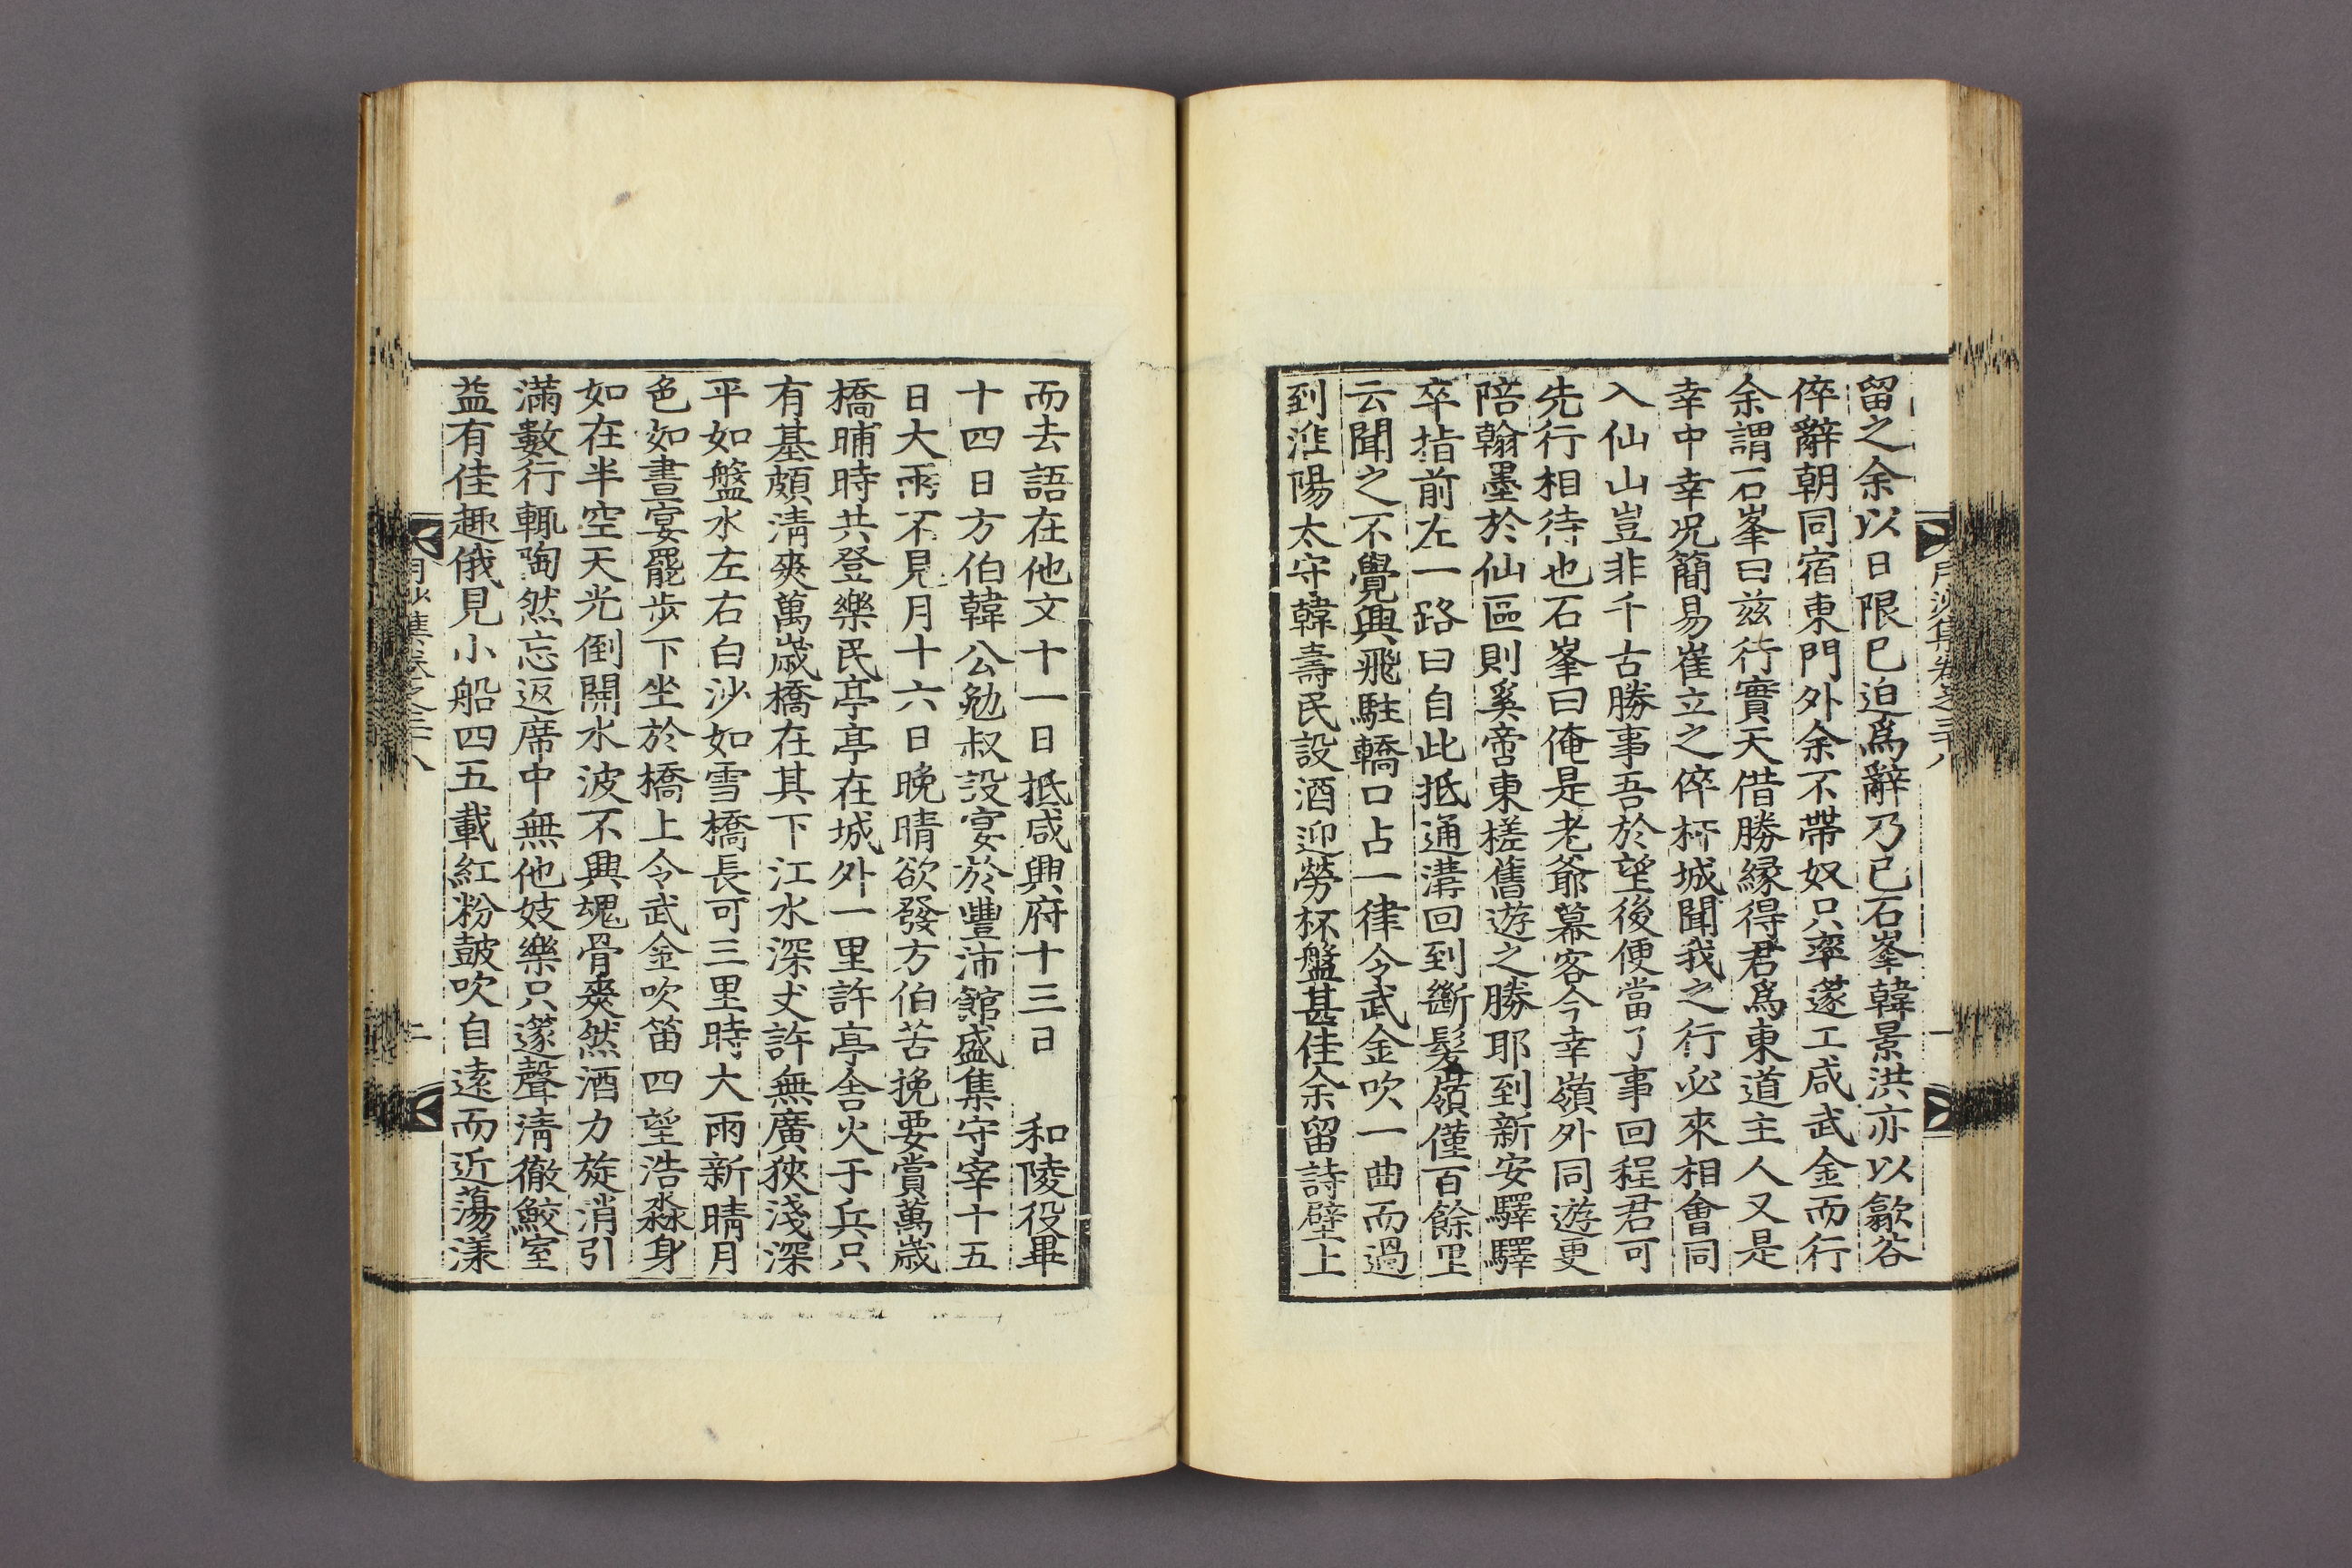 月沙集卷之三十八
一
留之余以日限已迫爲辭乃已石峯韓景洪亦以歙谷
倅辭朝同宿東門外余不帶奴只率篴工咸武金而行
余謂石峯曰兹行實天借勝緣得君爲東道主人又是
幸中幸况簡易崔立之倅杆城聞我之行必來相會同
入仙山豈非千古勝事吾於望後便當了事回程君可
先行相待也石峯曰俺是老爺幕客今幸嶺外同遊更
陪翰墨於仙區則奚啻東槎舊遊之勝耶到新安驛驛
卒指前左一路曰自此抵通溝回到斷髮嶺僅百餘里
云聞之不覺興飛駐轎口占一律令武金吹一曲而過
到淮陽太守韓壽民設酒迎勞杯盤甚佳余留詩壁上
而去語在他文十一日抵咸興府十三日　和陵役畢
十四日方伯韓公勉叔設宴於豐沛館盛集守宰十五
日大雨不見月十六日晚晴欲發方伯苦挽要賞萬歲
橋晡時共登樂民亭亭在城外一里許亭舍火于兵只
有基頗清爽萬歲橋在其下江水深丈許無廣狹淺深
平如盤水左右白沙如雪橋長可三里時大雨新晴月
色如晝宴罷步下坐於橋上令武金吹笛四望浩淼身
如在半空天光倒開水波不興魂骨爽然酒力旋消引
滿數行輒陶然忘返席中無他妓樂只篴聲清徹鮫室
益有佳趣俄見小船四五載紅粉皷吹自遠而近蕩漾
月沙集卷之三十八
二